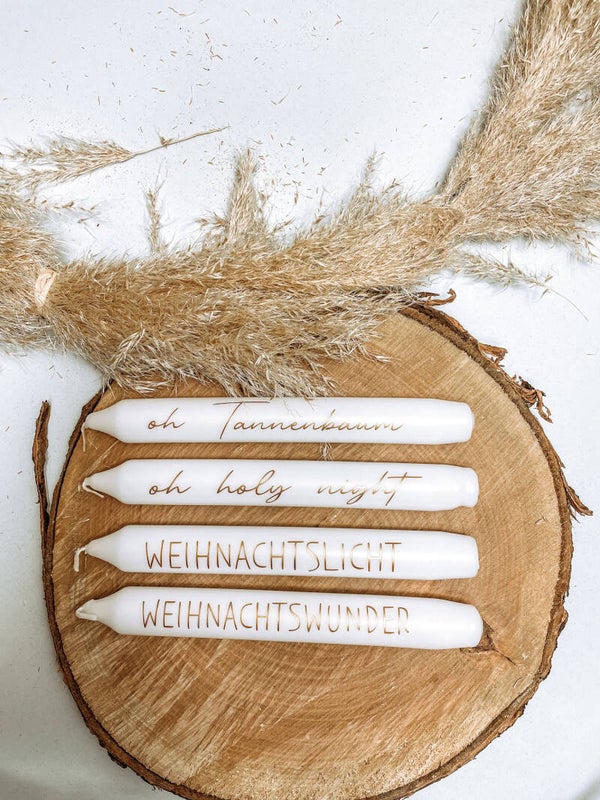 oh Tannenbaum
oh holy night
WEIHNACHTSLICHT
WEIHNACHTSWUNDER